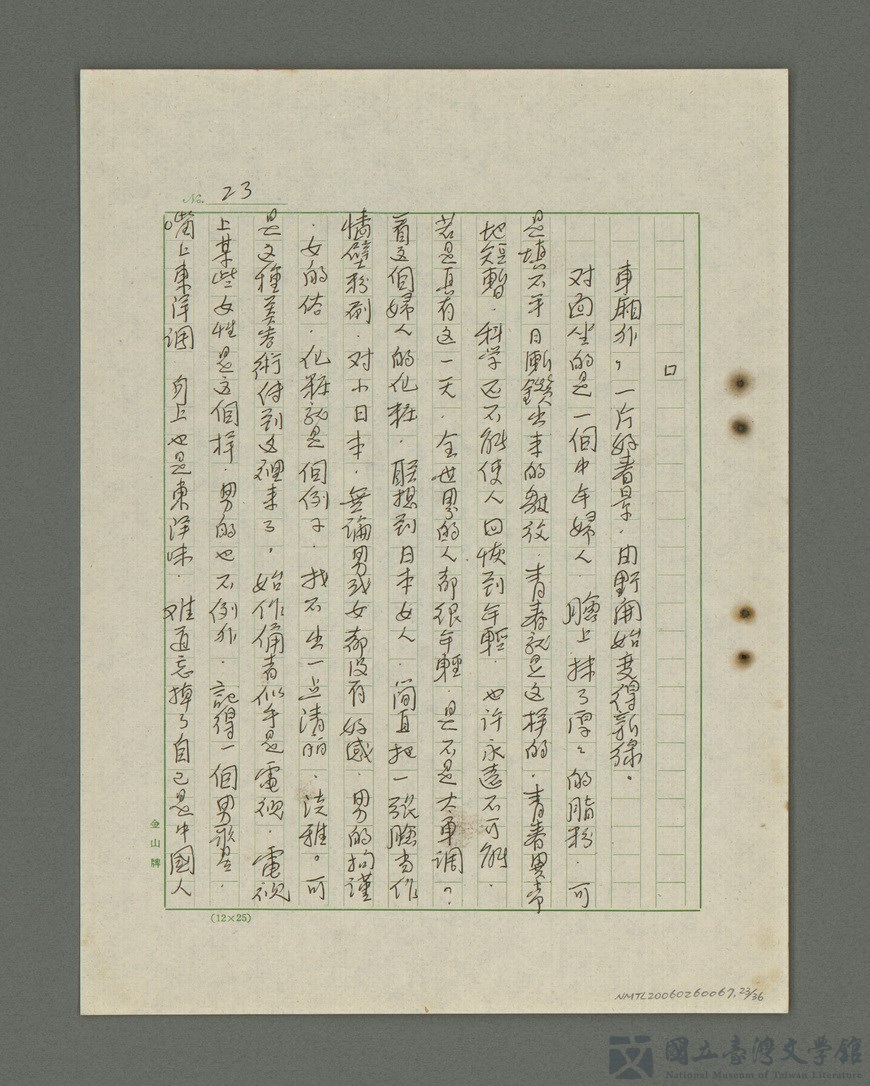 No. 23
口
車廂外,一片好春景.田野開始変得新綠。
对面坐的是一個中年婦人.臉上抹了厚々的脂粉.可
是填不平日漸鑽出来的皺紋.青春就是这样的.青春異常
地短暫.科学还不能使人回恢到年輕.也許永遠不可能.
若是真有这一天.全世界的人都很年輕.是不是太单調?.
看这個婦人的化粧.联想到日本女人.简直把一張臉当作
墙壁粉刷.对小日本.無論男或女都沒有好感.男的拘謹
.女的俗.化粧就是個例子.找不出一点清丽.淡雅。可
是这種美容術传到这裡来了,始作俑者似乎是電視.電視
上某些女性是这個样.男的也不例外.記得一個男歌星.
嘴上東洋调 身上也是東洋味.难道忘掉了自己是中國人
金山牌
(12×25)
NMTL20060260067.23/36
國立臺灣文學館
National Museum of Taiwan Literature